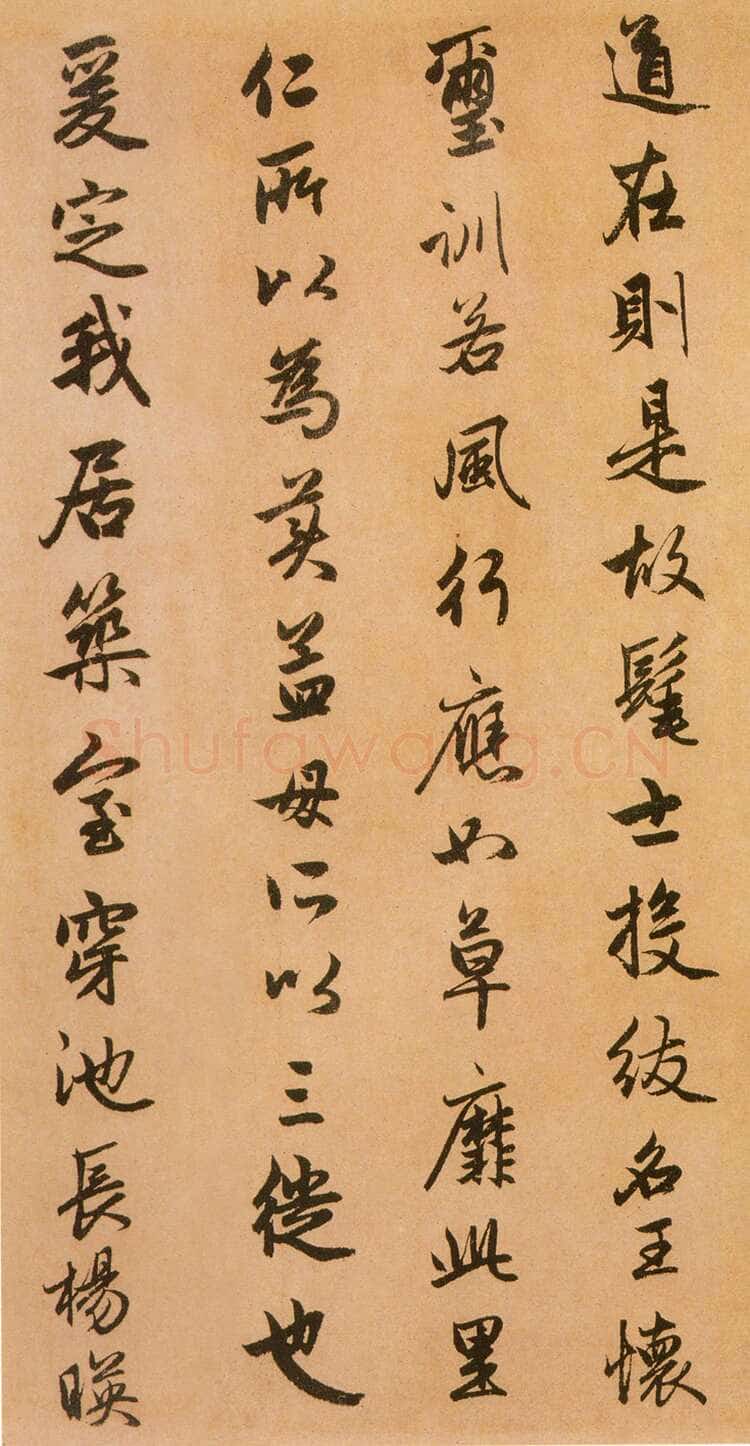 道在則是故髦士投紱名王懷
璽訓若風行應如草靡此里
仁所以為美孟母所以三徙也
爰定我居築室穿池長楊暎
Shufawang.CN